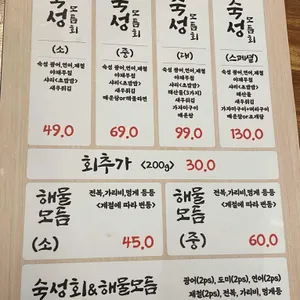 숙성 모듬회
숙성 모듬회
숙성 모듬회
숙성 모듬회
(소)
(중)
(대)
(스페셜)
숙성 광어,연어,제철
야채무침
샤리(초밥밥)
새우튀김
49.0
숙성 광어,연어,제철
야채무침
샤리(초밥밥)
새우튀김
매운탕or해물라면
69.0
숙성 광어,연어,제철
야채무침
샤리(초밥밥)
해산물(3가지)
새우튀김
가자미구이
매운탕
99.0
숙성 광어,연어,제철
야채무침
샤리(초밥밥)
새우튀김
130.0
회추가 <200g> 30.0
해물모듬
(소)
전복,가리비,멍게 등등
<계절에 따라 변동>
45.0
해물모듬
(중)
전복,가리비,멍게 등등
<계절에 따라 변동>
60.0
숙성회&해물모듬
광어(2ps), 도미(2ps), 연어(2ps)
제철(2ps), 전복, 가리비, 멍게등